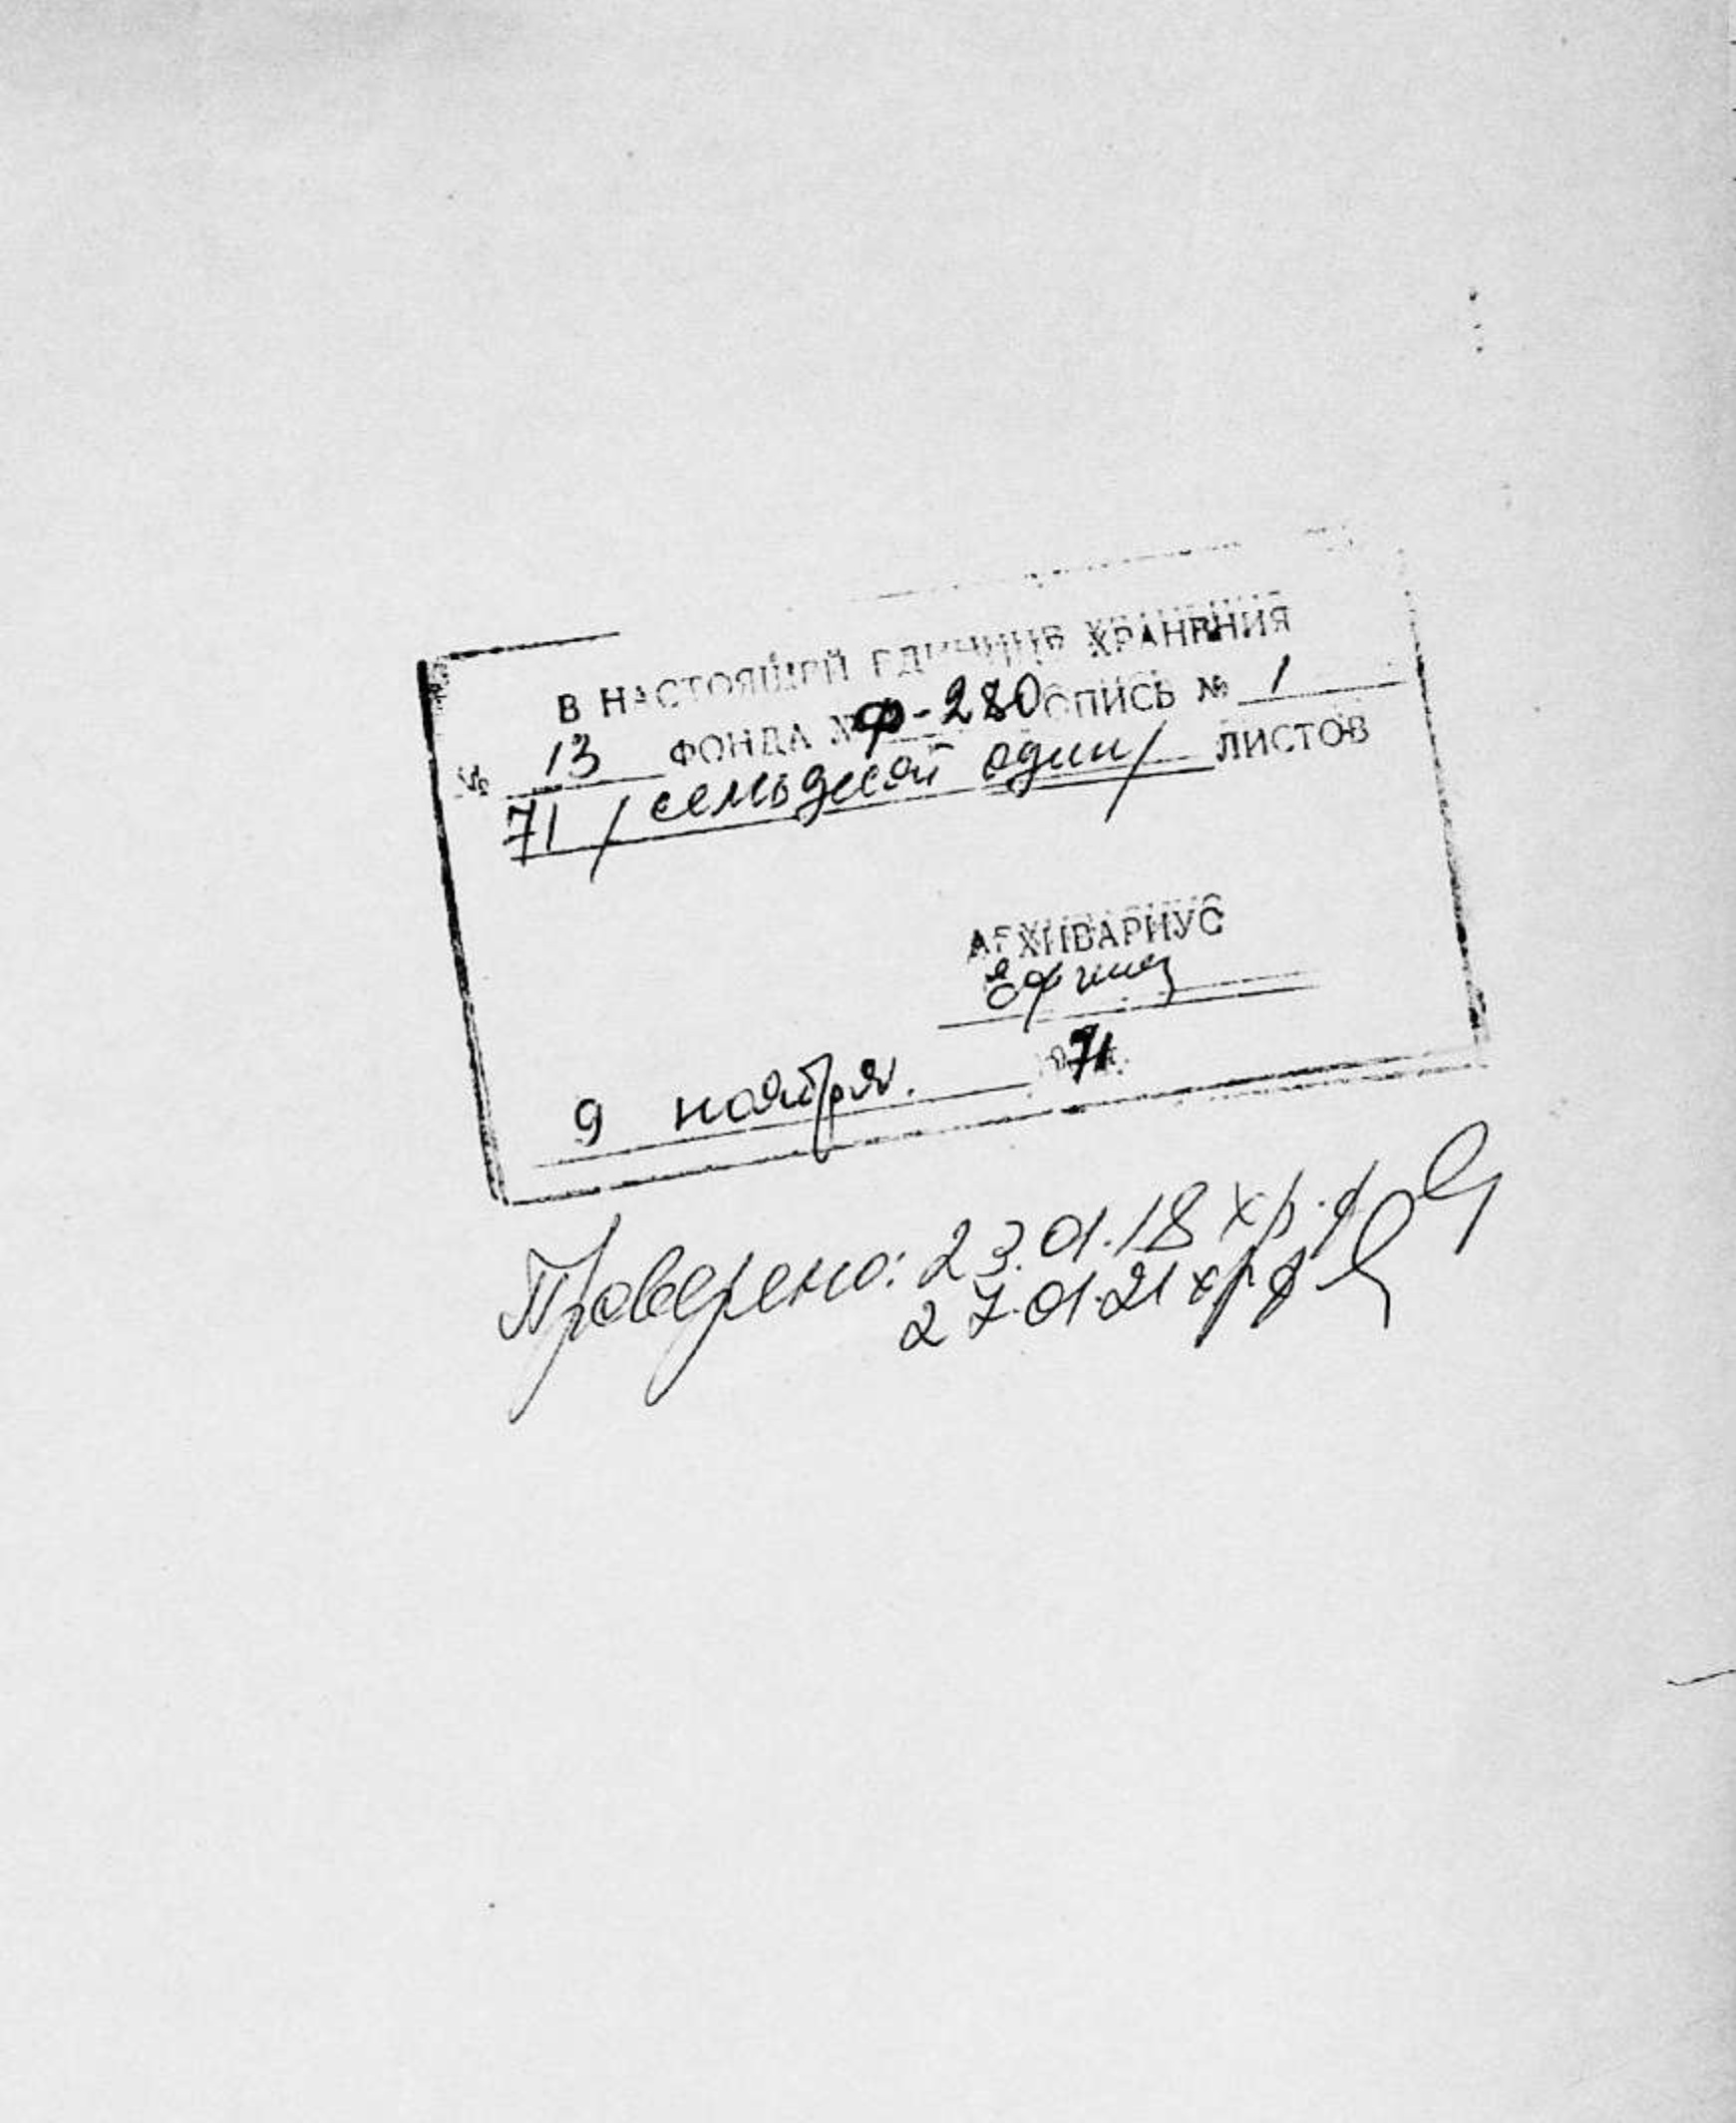 В НАСТОЯЩЕЙ ЕДИНИЦЕ ХРАНЕНИЯ
№ 13 ФОНДА № Ф-280 ОПИСЬ № 1
71 / семьдесят один / ЛИСТОВ
АРХИВАРИУС
9 ноября. 1971 г.
Проверено: 23.01.18 хр.ф
27.01.21 хр.ф